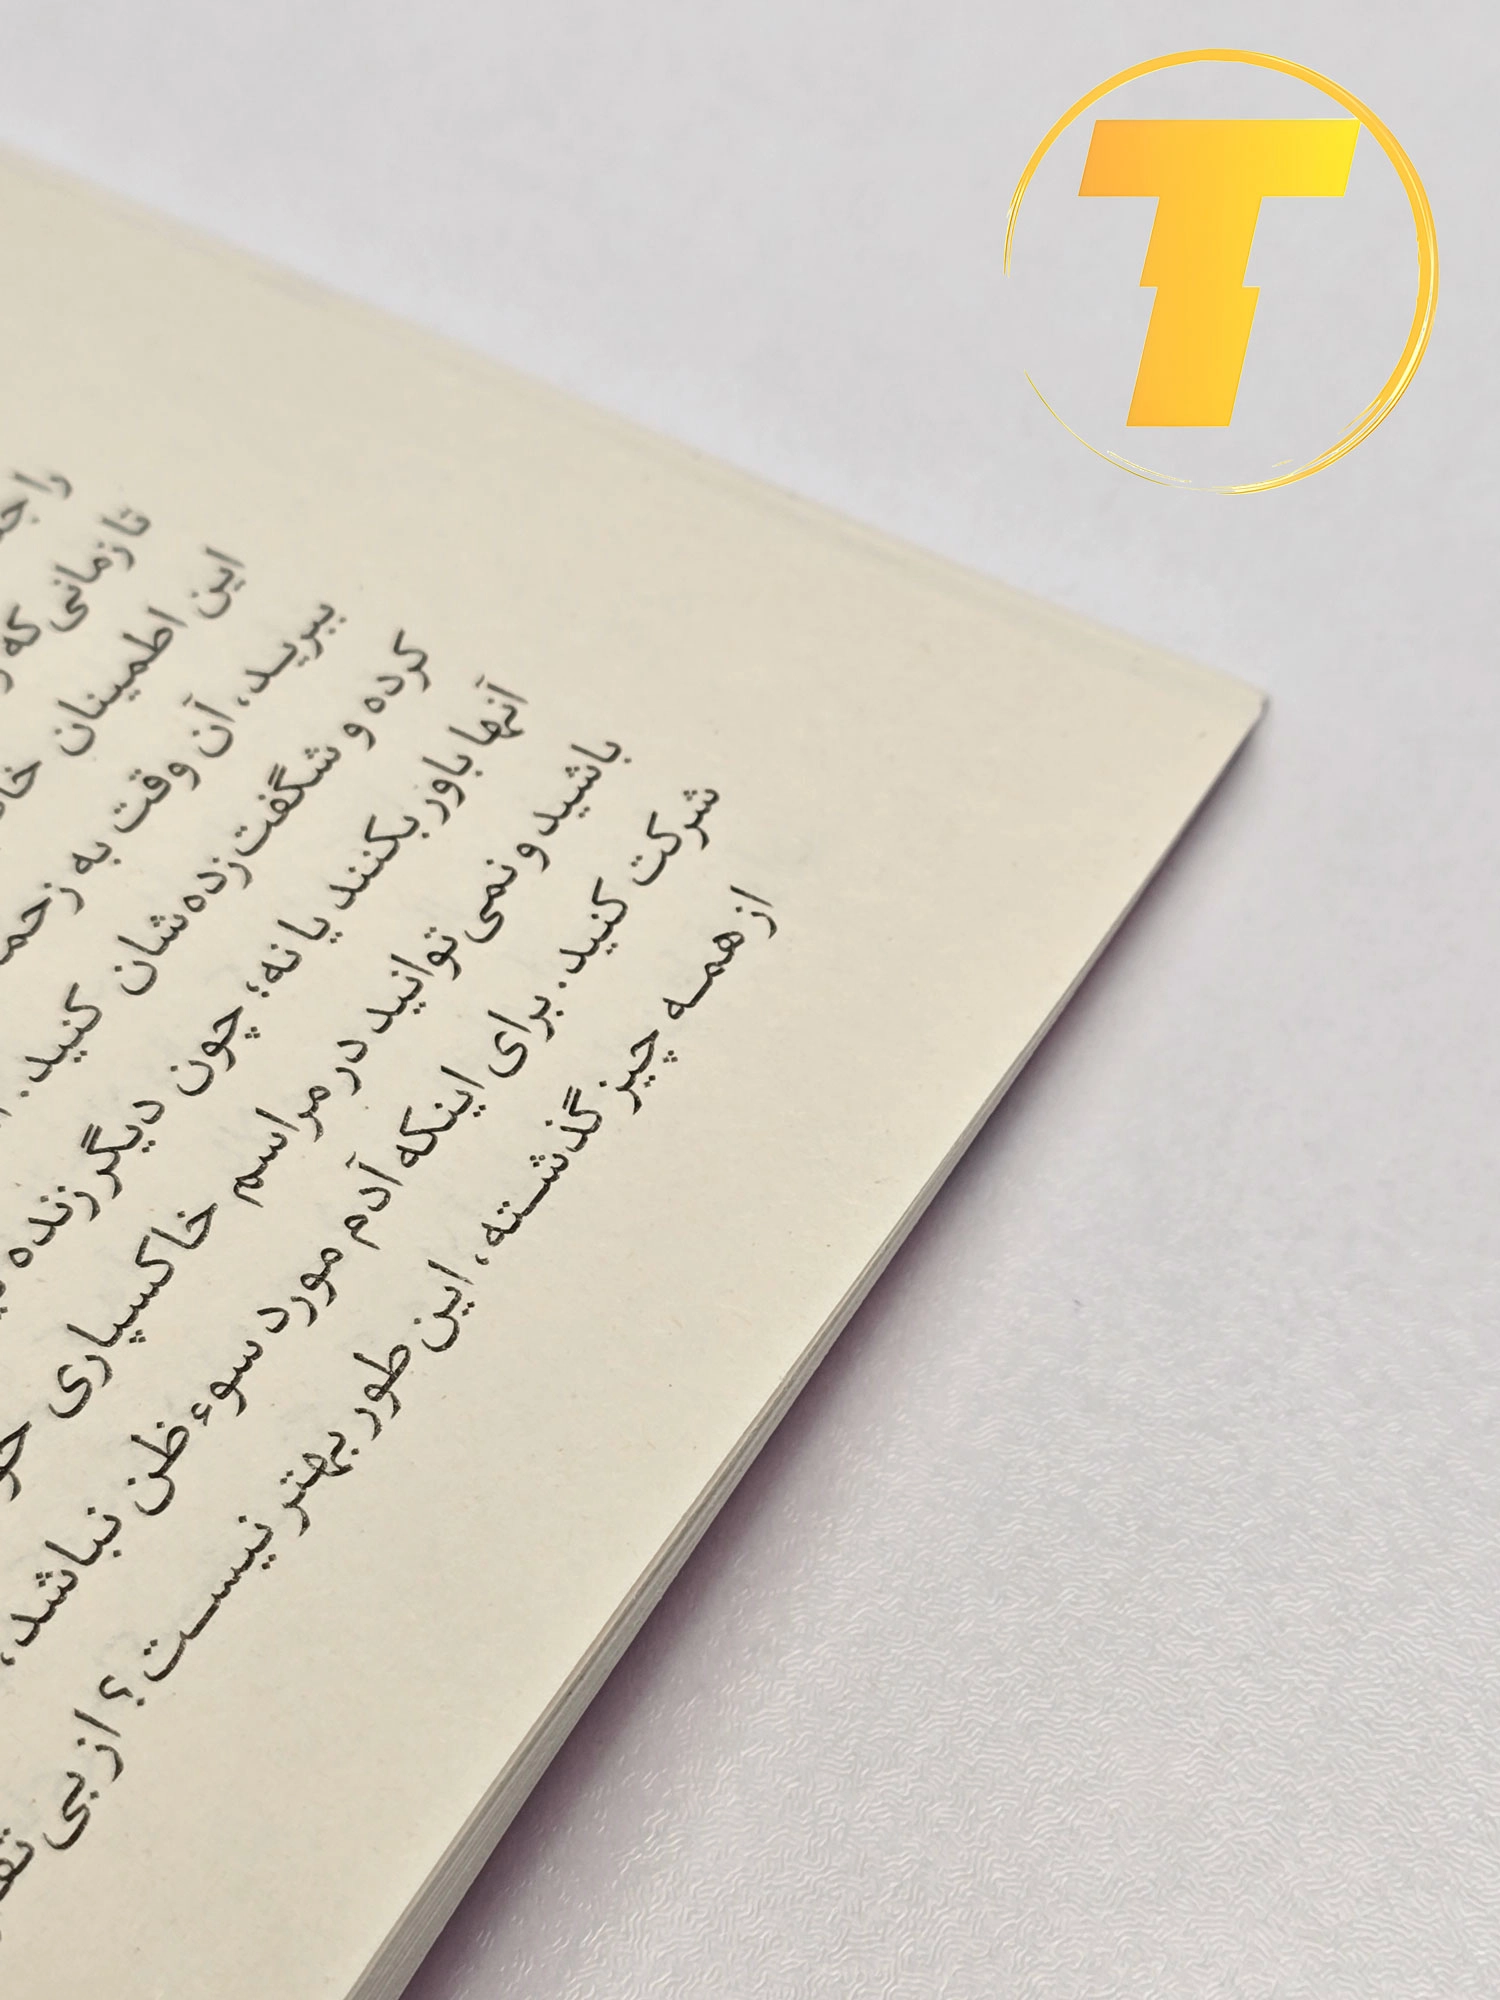 T
را
تا زمانی که
این اطمینان
ببرید، آن وقت به
کرده و شگفت‌زده‌شان کنید.
آنها باور بکنند یا نه؛ چون دیگر زنده
باشید و نمی توانید در مراسم خاکسپاری
شرکت کنید. برای اینکه آدم مورد سوء ظن نباشد،
از همه چیز گذشته، این طور بهتر نیست؟ از بی